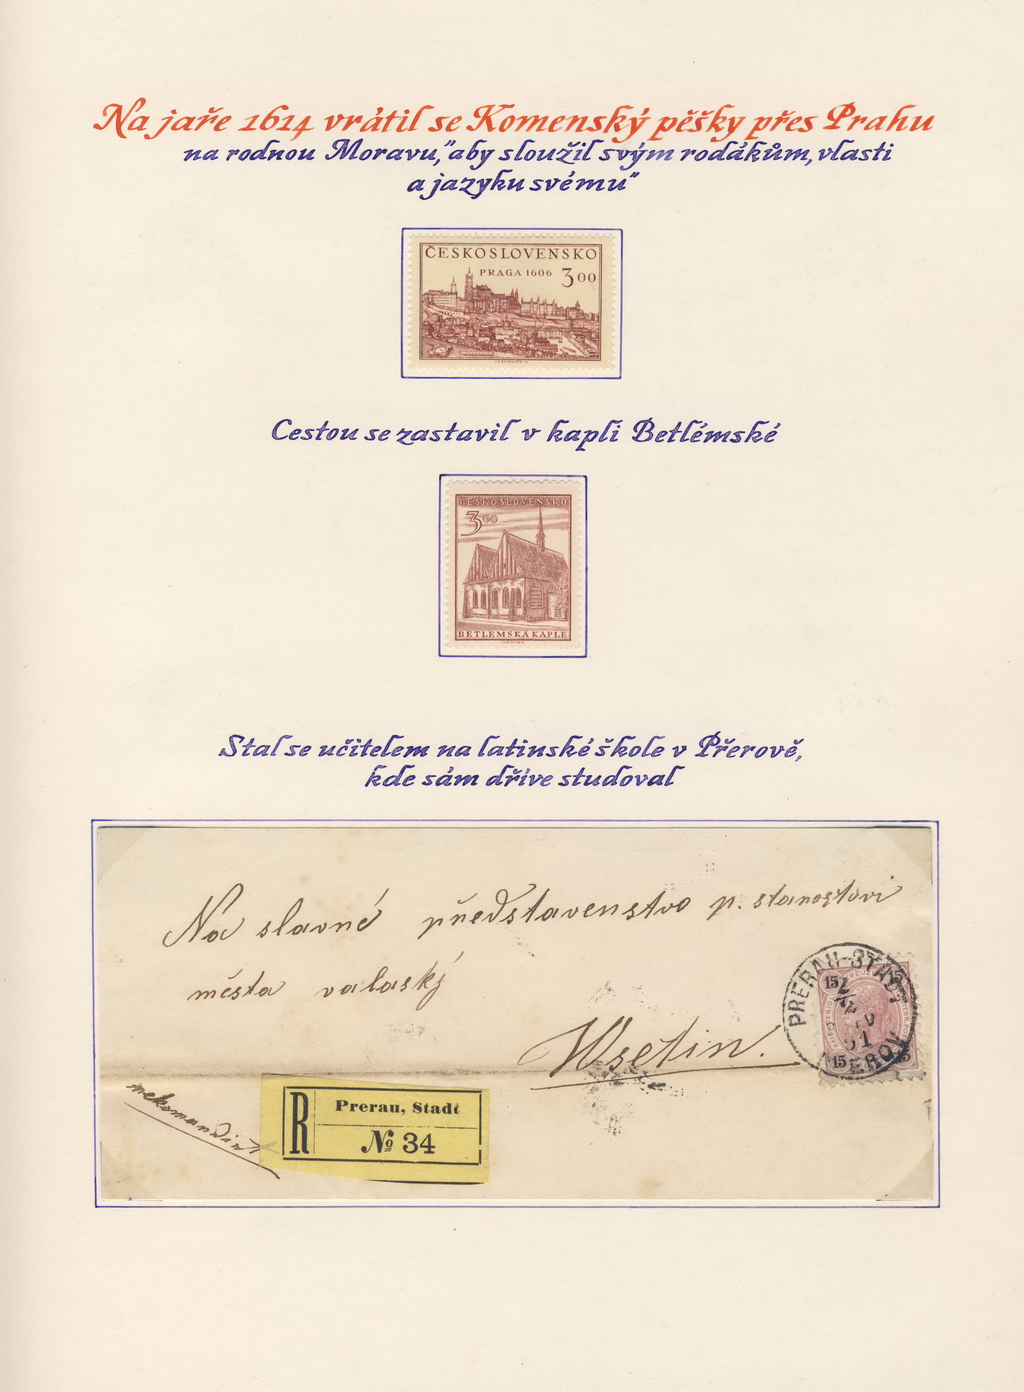 Na jaře 1614 vrátil se Komenský pěšky přes Prahu
na rodnou Moravu,"aby sloužil svým rodákům, vlasti
a jazyku svému"
ČESKOSLOVENSKO
PRAGA 1606 3 00
Cestou se zastavil v kapli Betlémské
ČESKOSLOVENSKO
3 00
BETLEMSKÁ KAPLE
Stal se učitelem na latinské škole v Přerově,
kde sám dříve studoval
Na slavné představenstvo p. starostovi
města valaský
Wsetin.
PRERAU-STADT
15
15
rekomandirt
R Prerau, Stadt
№ 34